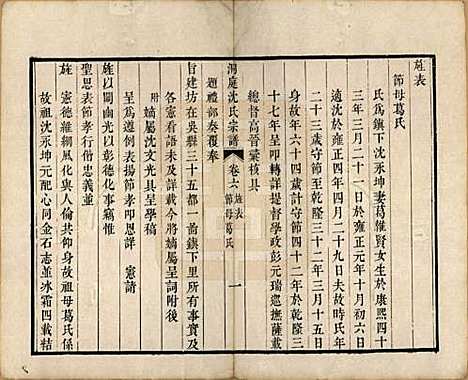 旌表
節母葛氏
氏爲鎮下沈永坤妻葛維賢女生於康熙四十
三年三月二十一日於雍正元年十月初六日
適沈於雍正四年四月二十九日夫故時氏年
二十三歲守節至乾隆三十二年三月十五日
身故年六十四歲計守節四十二年於乾隆三
十七年呈卽轉詳提督學政彭元瑞巡撫薩載
總督高晉彙核具
洞庭沈氏宗譜
卷六
旌表
節母葛氏
一
題禮部奏覆奉
旨建坊在吳縣三十五都一啚鎮下里所有事實及
各憲看語未及詳載今將嫡屬呈詞附後
附
嫡屬沈文光具呈學稿
呈爲遵例表揚節孝叩恩詳
憲請
旌以闡幽光以彰德化事竊惟
聖思表節孝行偕忠義並
旌
憲德維綱風化與人倫共仰身故祖母葛氏係
故祖沈永坤元配心同金石志並冰霜四載結